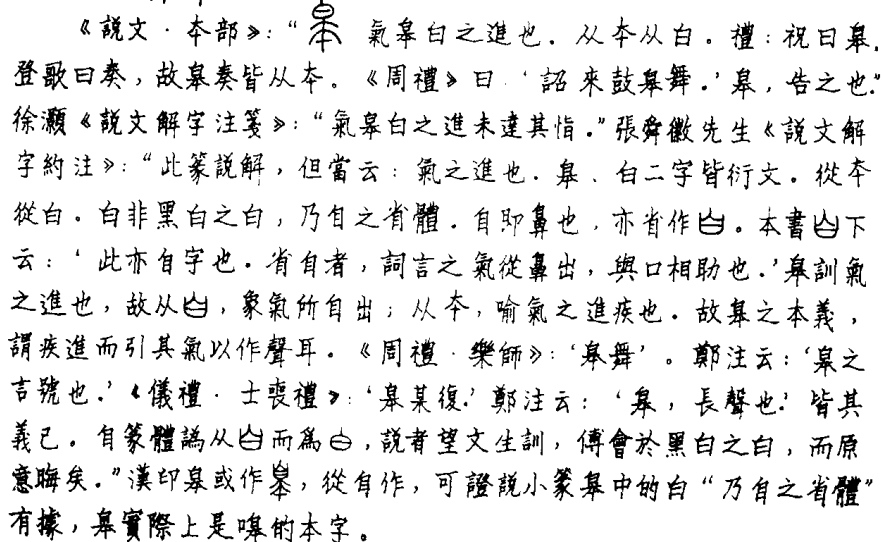 《說文·夲部》：“皋 氣皋白之進也．从夲从白。禮：祝曰皋．
登歌曰奏，故皋奏皆从夲．《周禮》曰．‘詔來鼓皋舞．’皋，告之也．”
徐灝《說文解字注箋》：“氣皋白之進未達其恉。”張舜徽先生《說文解
字約注》：“此篆説解，但當云：氣之進也．皋、白二字皆衍文。從夲
從白．白非黑白之白，乃自之省體．自即鼻也，亦省作白。本書白下
云：‘此亦自字也。省自者，詞言之氣從鼻出，與口相助也．’皋訓氣
之進也，故从白，象氣所自出；从夲，喻氣之進疾也。故皋之本義，
謂疾進而引其氣以作聲耳。《周禮·樂師》：‘皋舞’。鄭注云：‘皋之
言號也．’《儀禮·士喪禮》：‘皋某復．’鄭注云：‘皋，長聲也．’皆其
義已。自篆體譌从白而爲白，説者望文生訓，傅會於黑白之白，而原
意晦矣。”漢印皋或作臯，從自作，可證說小篆皋中的白“乃自之省體”
有據，皋實際上是嘷的本字。